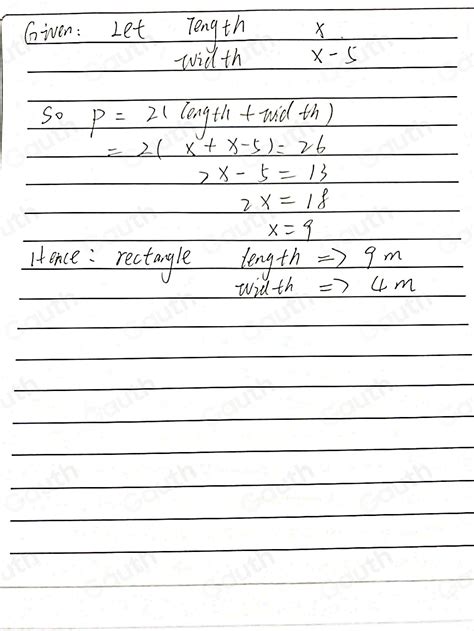 Given: Let length x
width x - 5
So P = 2(length + width)
= 2(x + x-5) = 26
2x - 5 = 13
2x = 18
x = 9
Hence: rectangle length => 9 m
width => 4 m